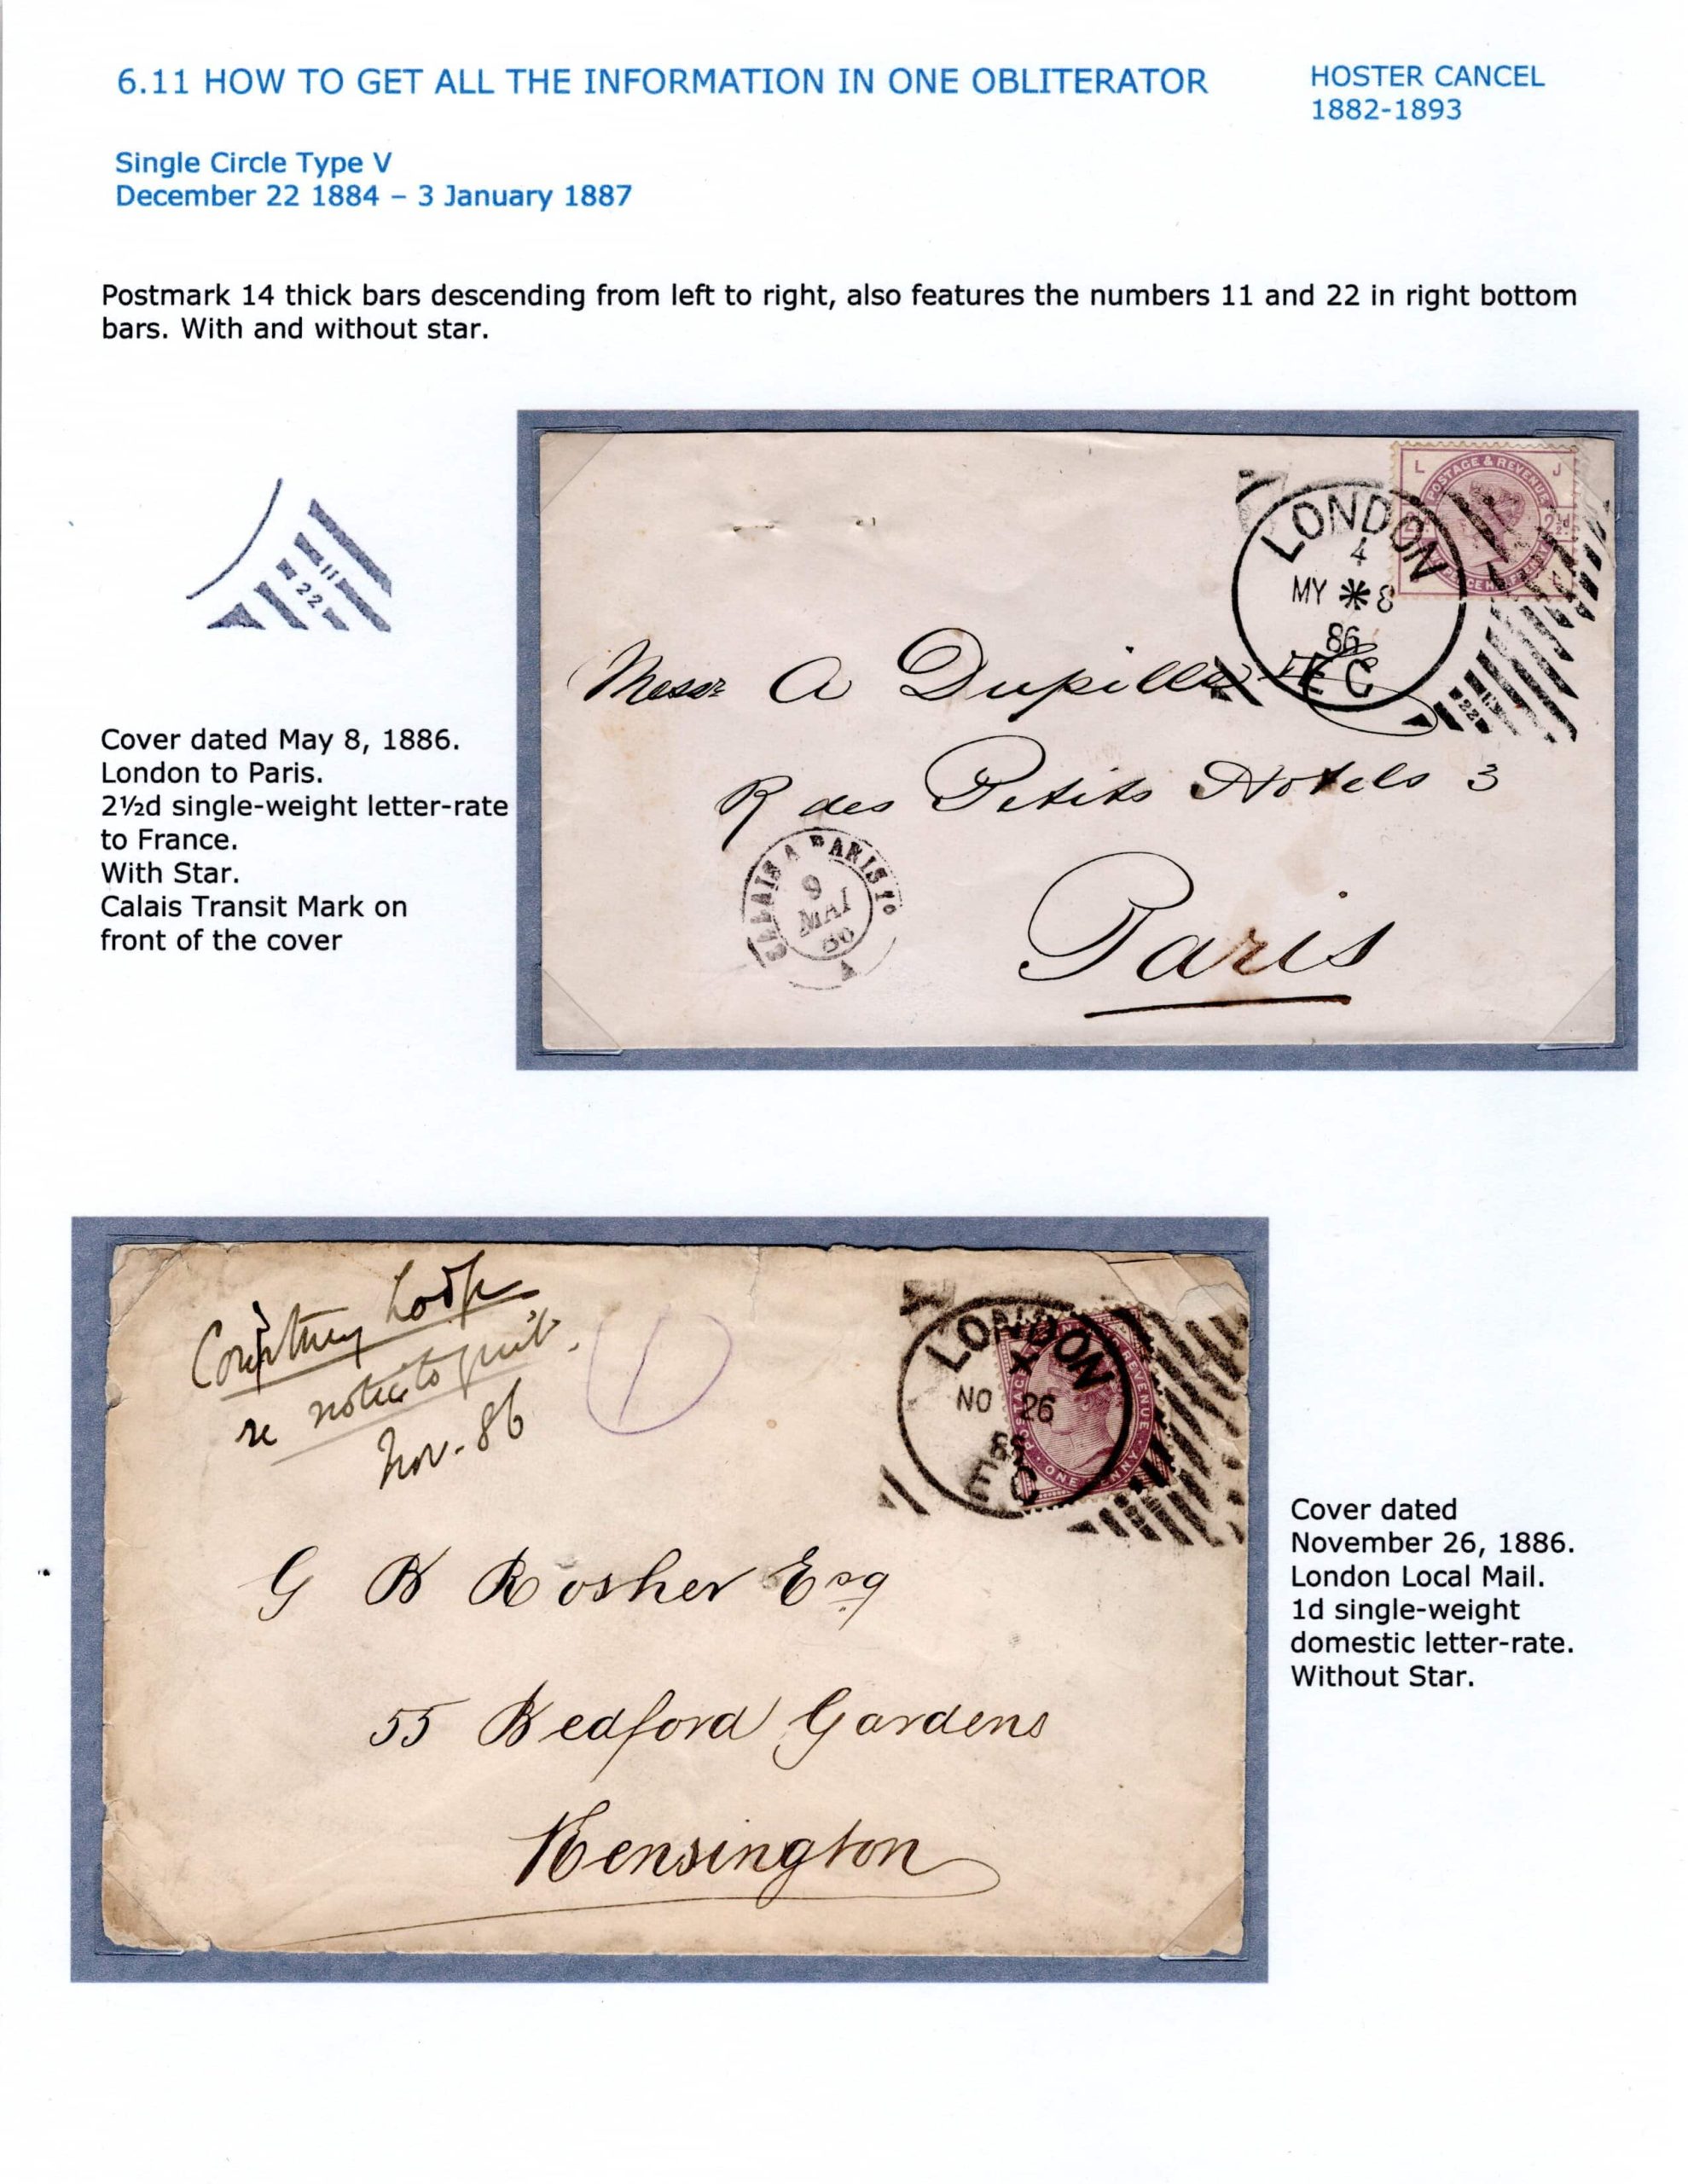 6.11 HOW TO GET ALL THE INFORMATION IN ONE OBLITERATOR
HOSTER CANCEL
1882-1893
Single Circle Type V
December 22 1884 – 3 January 1887
Postmark 14 thick bars descending from left to right, also features the numbers 11 and 22 in right bottom
bars. With and without star.
11
22
Cover dated May 8, 1886.
London to Paris.
2½d single-weight letter-rate
to France.
With Star.
Calais Transit Mark on
front of the cover
L J
POSTAGE & REVENUE
2½d
LONDON
4
MY * 8
86
EC
22
Messrs A Dupille
R des Petits Hotels 3
Paris
CALAIS A PARIS 1º
9
MAI
86
Courtney Lodge
re notice to quit.
Nov. 86
1
LONDON
X
NO 26
86
EC
POSTAGE REVENUE
ONE PENNY
G B Rosher Esq
55 Bedford Gardens
Kensington
Cover dated
November 26, 1886.
London Local Mail.
1d single-weight
domestic letter-rate.
Without Star.